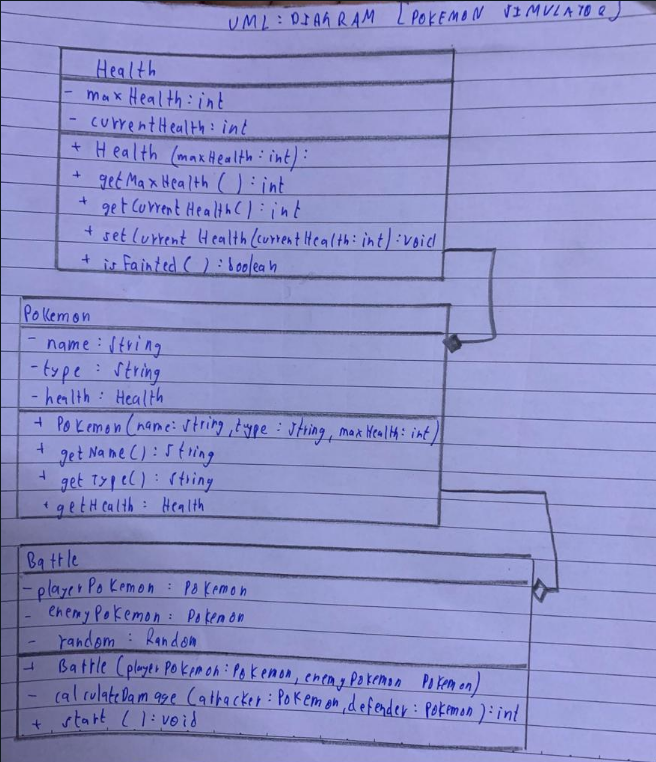 UML: DIAGRAM [POKEMON SIMULATOR]
Health
- maxHealth: int
- currentHealth: int
+ Health (maxHealth: int):
+ getMaxHealth ( ) : int
+ getCurrentHealth( ) : int
+ setCurrent Health (currentHealth: int) : void
+ isFainted ( ) : boolean
Pokemon
- name : String
- type : String
- health : Health
+ Pokemon (name: String, type : String, maxHealth: int)
+ getName ( ) : String
+ get Type( ) : String
+ getHealth : Health
Battle
- playerPokemon : Pokemon
- enemyPokemon : Pokemon
- random : Random
+ Battle (playerPokemon: Pokemon, enemyPokemon Pokemon)
- calculateDamage (attacker: Pokemon, defender : Pokemon) : int
+ start ( ) : void